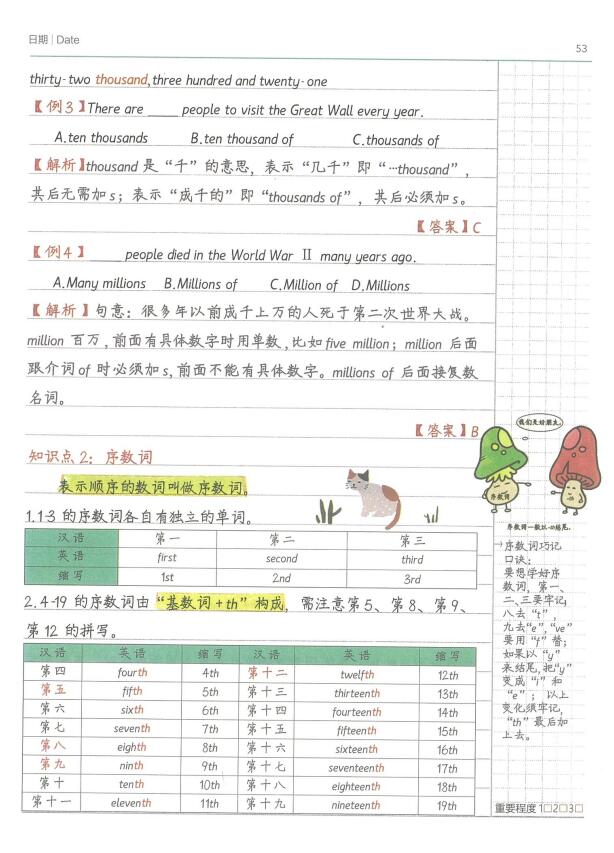 日期 | Date
53
thirty-two thousand, three hundred and twenty-one
【例3】There are ____ people to visit the Great Wall every year.
A.ten thousands B.ten thousand of C.thousands of
【解析】thousand 是“千”的意思，表示“几千”即“…thousand”，
其后无需加s；表示“成千的”即“thousands of”，其后必须加s。
【答案】C
【例4】____ people died in the World War Ⅱ many years ago.
A.Many millions B.Millions of C.Million of D.Millions
【解析】句意：很多年以前成千上万的人死于第二次世界大战。
million 百万，前面有具体数字时用单数，比如five million；million 后面
跟介词of 时必须加s，前面不能有具体数字。millions of 后面接复数
名词。
【答案】B
知识点2：序数词
表示顺序的数词叫做序数词。
1.1-3 的序数词各自有独立的单词。
汉语 第一 第二 第三
英语 first second third
缩写 1st 2nd 3rd
2.4-19 的序数词由“基数词+th”构成，需注意第5、第8、第9、
第12 的拼写。
汉语 英语 缩写 汉语 英语 缩写
第四 fourth 4th 第十二 twelfth 12th
第五 fifth 5th 第十三 thirteenth 13th
第六 sixth 6th 第十四 fourteenth 14th
第七 seventh 7th 第十五 fifteenth 15th
第八 eighth 8th 第十六 sixteenth 16th
第九 ninth 9th 第十七 seventeenth 17th
第十 tenth 10th 第十八 eighteenth 18th
第十一 eleventh 11th 第十九 nineteenth 19th
我们是好朋友。
序数词
序数词一般以-th结尾。
→序数词巧记
口诀：
要想学好序
数词，第一、
二、三要牢记，
八去“t”，
九去“e”，“ve”
要用“f”替；
如果以“y”
来结尾，把“y”
变成“i”和
“e”；以上
变化须牢记，
“th”最后加
上去。
重要程度 1□2□3□